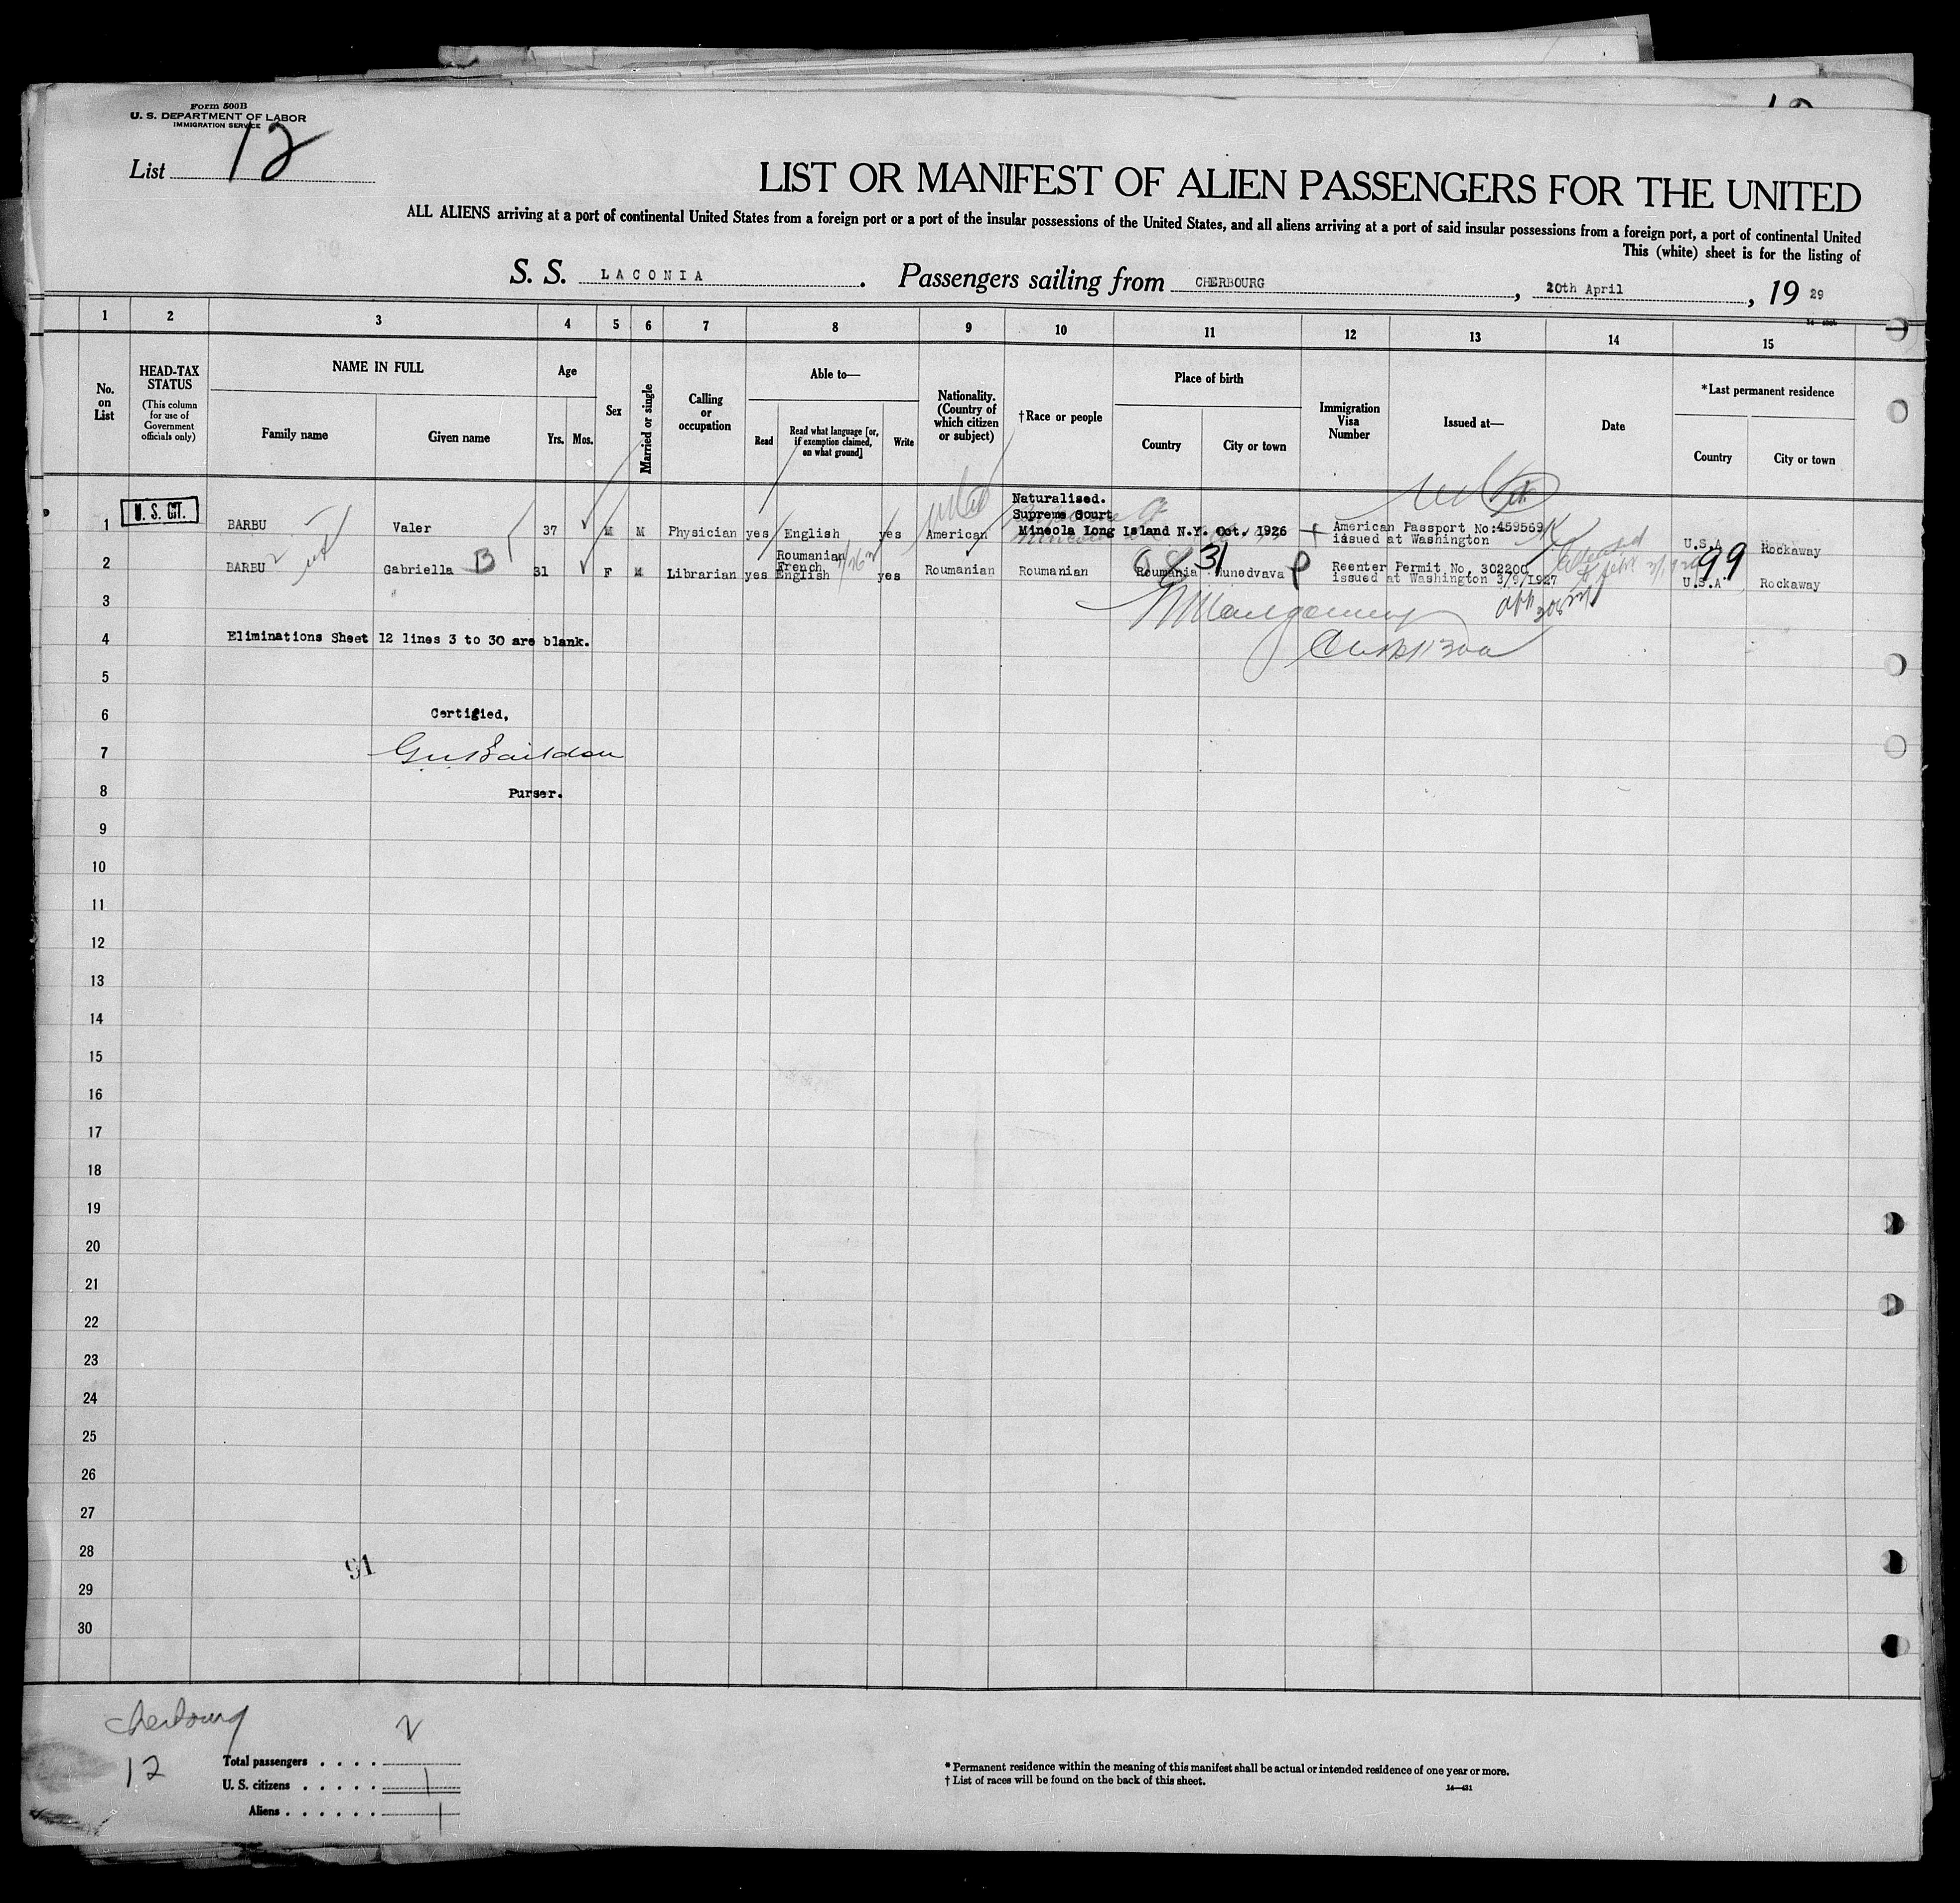 Form 500B
U. S. DEPARTMENT OF LABOR
IMMIGRATION SERVICE
List 12
LIST OR MANIFEST OF ALIEN PASSENGERS FOR THE UNITED
ALL ALIENS arriving at a port of continental United States from a foreign port or a port of the insular possessions of the United States, and all aliens arriving at a port of said insular possessions from a foreign port, a port of continental United
This (white) sheet is for the listing of
S. S. LACONIA. Passengers sailing from CHERBOURG, 20th April, 19 29
1 2 3 4 5 6 7 8 9 10 11 12 13 14 15
No. on List
HEAD-TAX STATUS
(This column for use of Government officials only)
NAME IN FULL
Family name
Given name
Age
Yrs. Mos.
Sex
Married or single
Calling or occupation
Able to—
Read
Read what language [or, if exemption claimed, on what ground]
Write
Nationality. (Country of which citizen or subject)
†Race or people
Place of birth
Country
City or town
Immigration Visa Number
Issued at—
Date
*Last permanent residence
Country
City or town
Naturalised.
Supreme Court
1 U. S. CIT. BARBU Valer 37 M M Physician yes English yes American Mineola Long Island N.Y. Oct. 1926 American Passport No:459569 issued at Washington U.S.A Rockaway
2 BARBU Gabriella B 31 F M Librarian yes Roumanian French English yes Roumanian Roumanian Roumania Hunedvava Reenter Permit No. 302200 issued at Washington 3/9/1927 U.S.A Rockaway
31
99
3
4 Eliminations Sheet 12 lines 3 to 30 are blank.
5
6 Certified,
7
8 Purser.
9
10
11
12
13
14
15
16
17
18
19
20
21
22
23
24
25
26
27
28
91
29
30
Cherbourg
12
2
Total passengers . . . .
U. S. citizens . . . . . 1
Aliens . . . . . . 1
* Permanent residence within the meaning of this manifest shall be actual or intended residence of one year or more.
† List of races will be found on the back of this sheet.
14—421